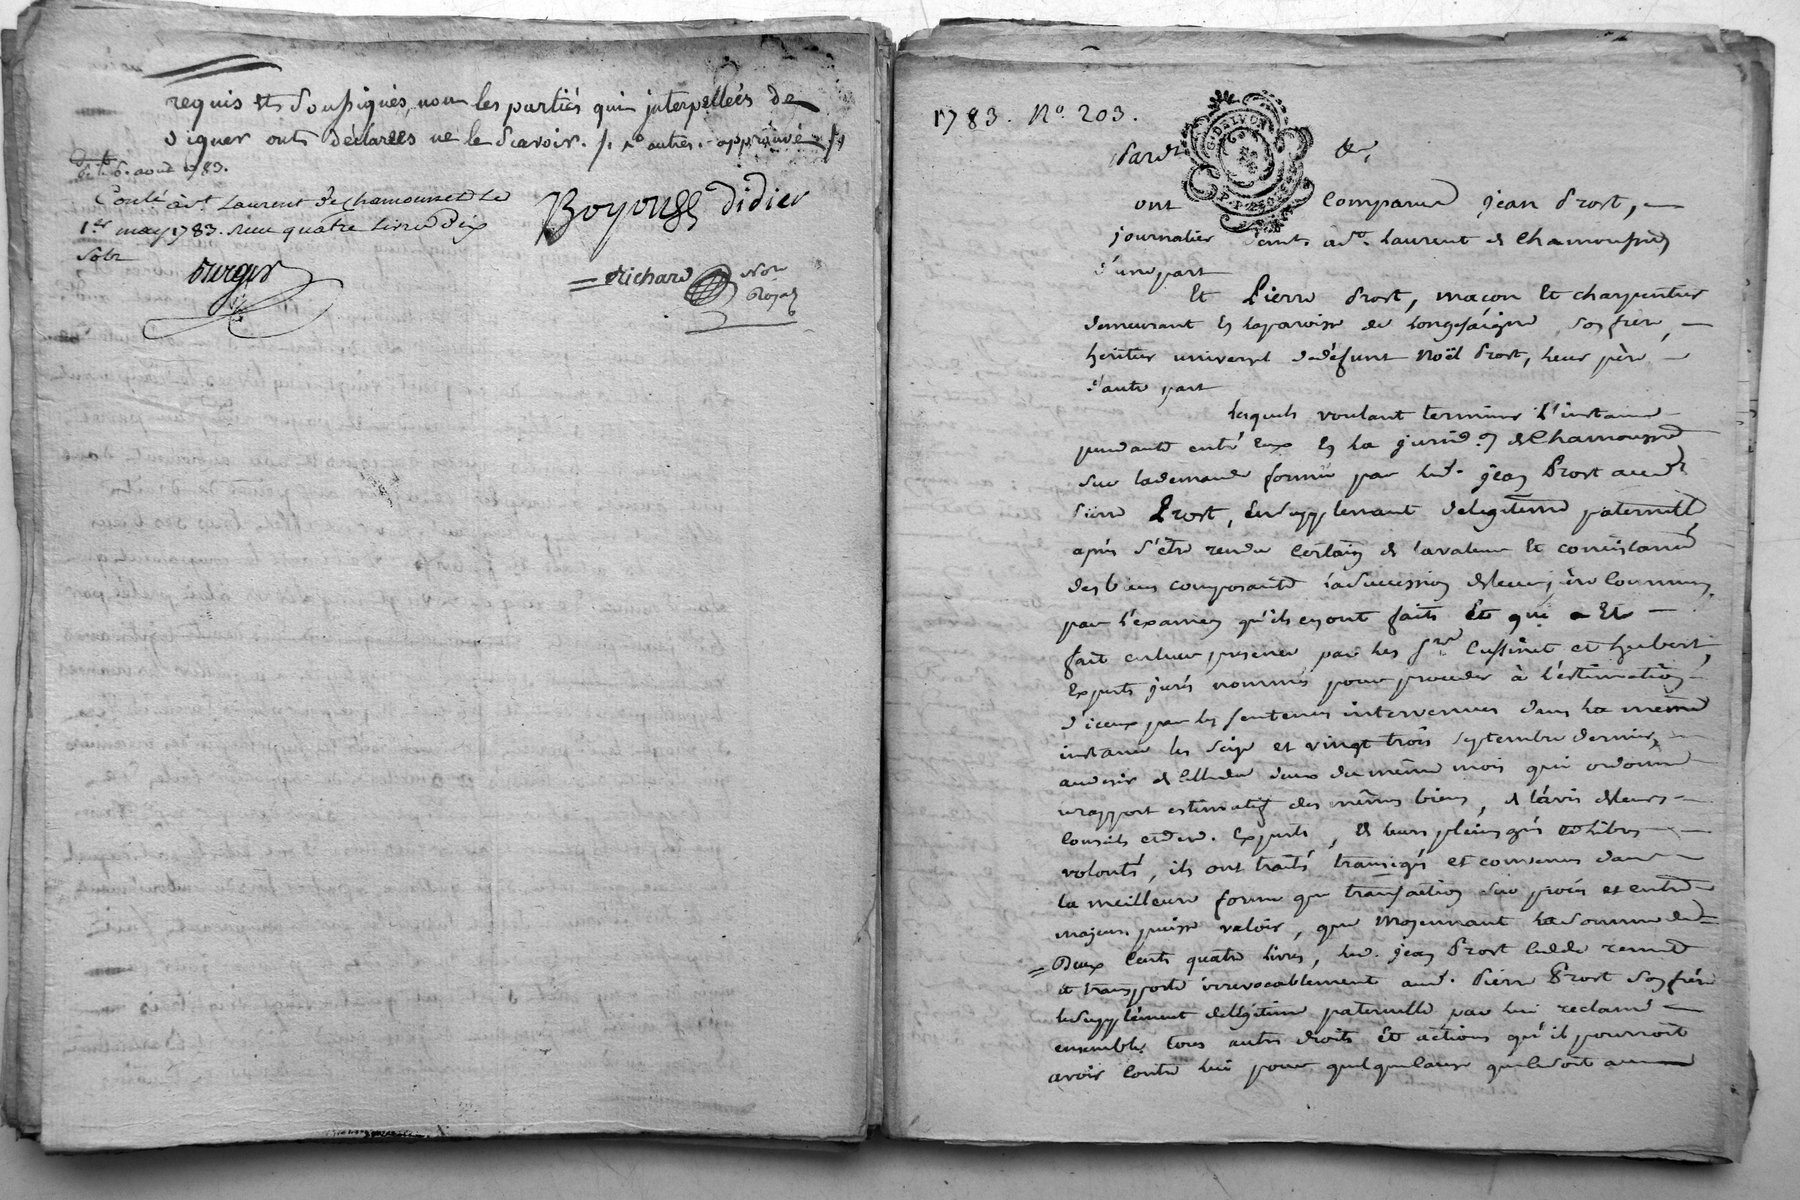 requis Et Soussignés, non les partiés qui interpellées de
Signer onts Déclarées ne le Scavoir. /. autres. approuvé
6. aout 1783.
Conlé à st Laurent De Chamousset Le
1er may 1783. reçu quatre livres Dix
Sols
Burger
Boyousse Didier
Richard Notre
Royal
1783. No. 203.
Pardt &c,
G. DE LYON
ont Comparus jean Prost,
journalier demt. à st. Laurent de Chamousset
d'une part
Et Pierre Prost, maçon Et charpentier
demeurant En laparoisse de Longessaigne, Son frere,
heritier universel dedéfunt Noël Prost, leur père,
d'autre part
Lesquels voulant terminer L'instance
pendante entre Eux En La jurid.on de Chamousset
sur lademande formée par led. jean Prost audt
Pierre Prost, Ensupplement delegitime paternelle
après S'être rendu Certain de lavaleur Et consistance
desbiens composants laSuccession deleur père Commun,
par l'examen qu'ils enont faits Et qui a Eté
fait enleur presence par les Srs Cussinet et hubert,
Experts jurés nommés pour proceder à l'estimation
d'iceux par les sentences intervenues dans La même
instance les Seize et vingt trois Septembre dernier,
audesir de Celledu deux du même mois qui ordonne
rapport estimatif des mêmes biens, de l'avis deleurs
Conseils et desd. Experts, de leurs pleins grés et libres
volonté, ils ont traités, transigés et convenus dans
la meilleure forme que transaction sur procès et entre
majeurs puisse valoir, que Moyennant La somme de
Deux Cents quatre livres, led. jean Prost Cedde remet
et transporte irrevocablement aud. Pierre Prost Son frère
leSupplément deLégitime paternelle par lui reclamé
ensemble tous autres droits Et actions qu'il pourroit
avoir Contre lui pour quelque Cause que ce soit au